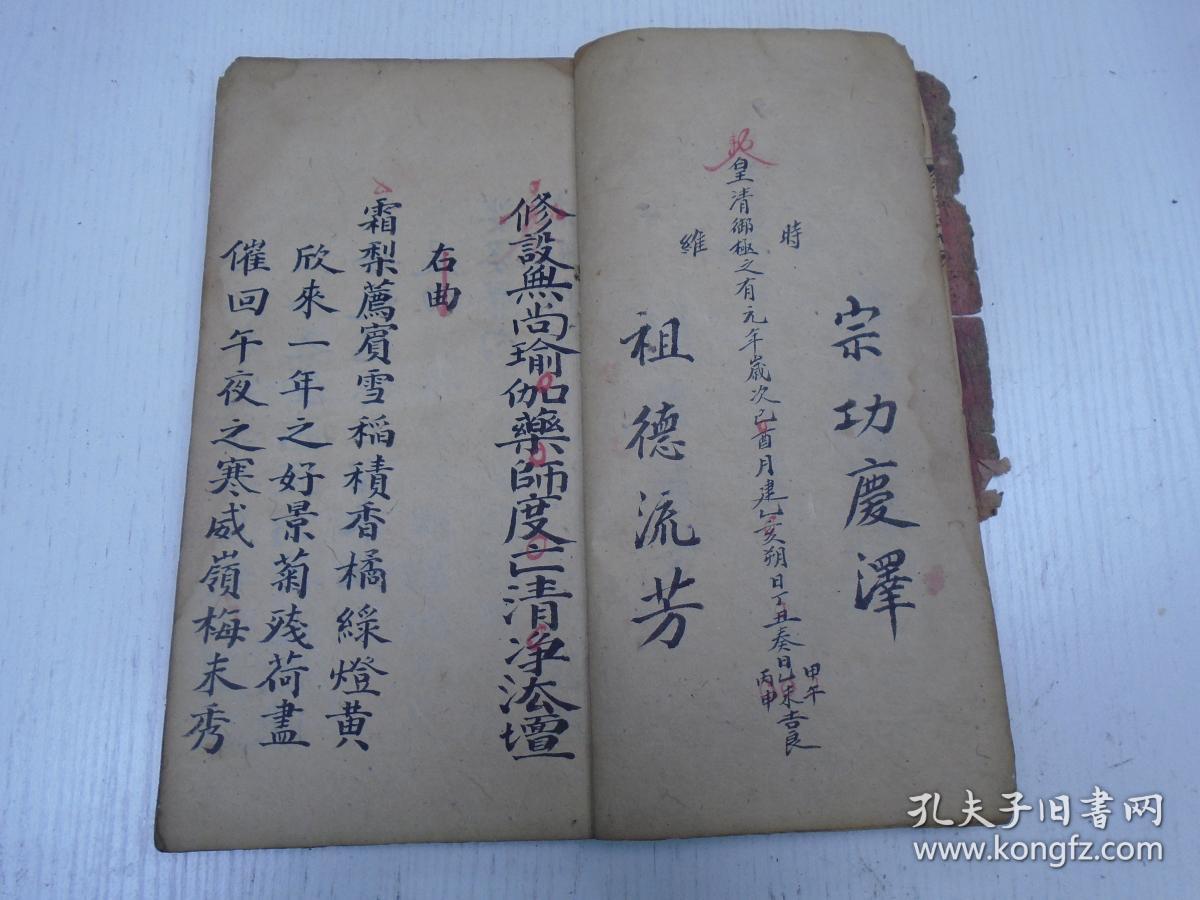 宗功慶澤
時
皇清御極之有元年歲次己酉月建乙亥朔日丁丑奏日乙未吉良
甲午
丙申
維
祖德流芳
修設無尚瑜伽藥師度亡清净法壇
右曲
霜梨薦賓雪稲積香橘綵燈黄
欣來一年之好景菊残荷盡
催回午夜之寒威嶺梅未秀
孔夫子旧书网
www.kongfz.com